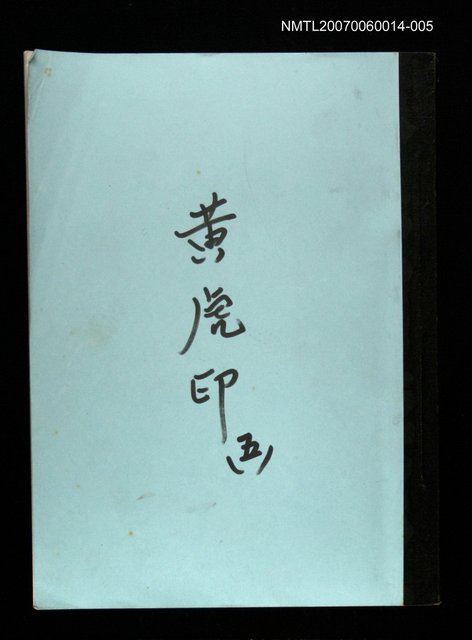 NMTL20070060014-005
黃虎印
(五)